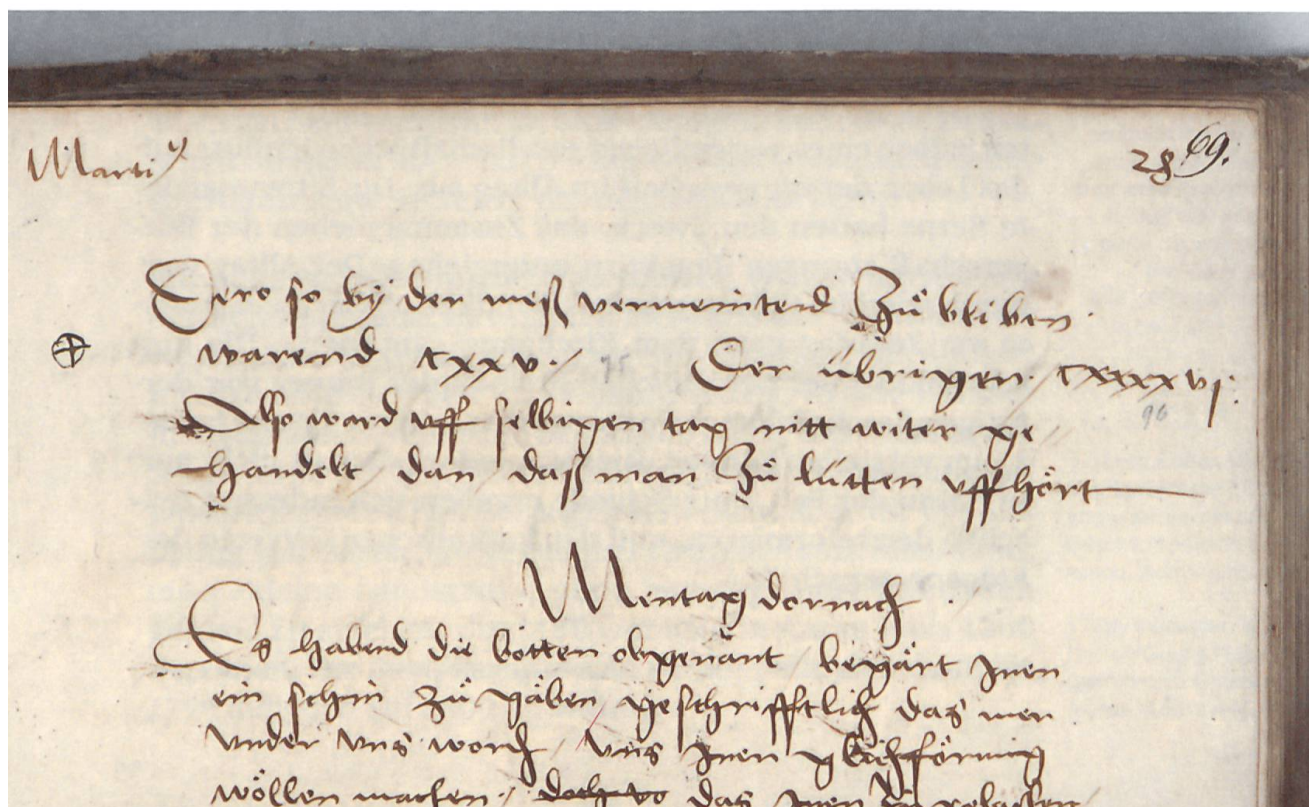 Martij
28 69.
Dero so by der meß vermeintend Zů bliben
warend cxxv / Der übrigen / cxxxxvj.
96
Also ward uff selbigen tag nitt witer ge
handelt dan daß man Zů lütten uffhört
Mentag dornach
Es habend die botten obgenant / begärt Jnen
ein schin zů gäben geschrifftlich das mer
vnder vns word / vns Jnen glichförmig
wöllen machen / das Jnen